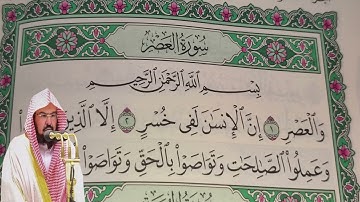 سُورَةُ الْعَصْرِ
بِسْمِ اللَّهِ الرَّحْمَٰنِ الرَّحِيمِ
وَالْعَصْرِ ١ إِنَّ الْإِنسَٰنَ لَفِى خُسْرٍ ٢ إِلَّا الَّذِينَ
وَعَمِلُوا الصَّٰلِحَٰتِ وَتَوَاصَوْا بِالْحَقِّ وَتَوَاصَوْا